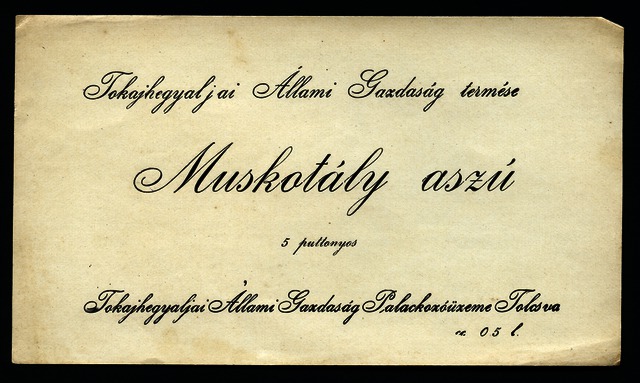 Tokajhegyaljai Állami Gazdaság termése
Muskotály aszú
5 puttonyos
Tokajhegyaljai Állami Gazdaság Palackozóüzeme Tolcsva
05 l.